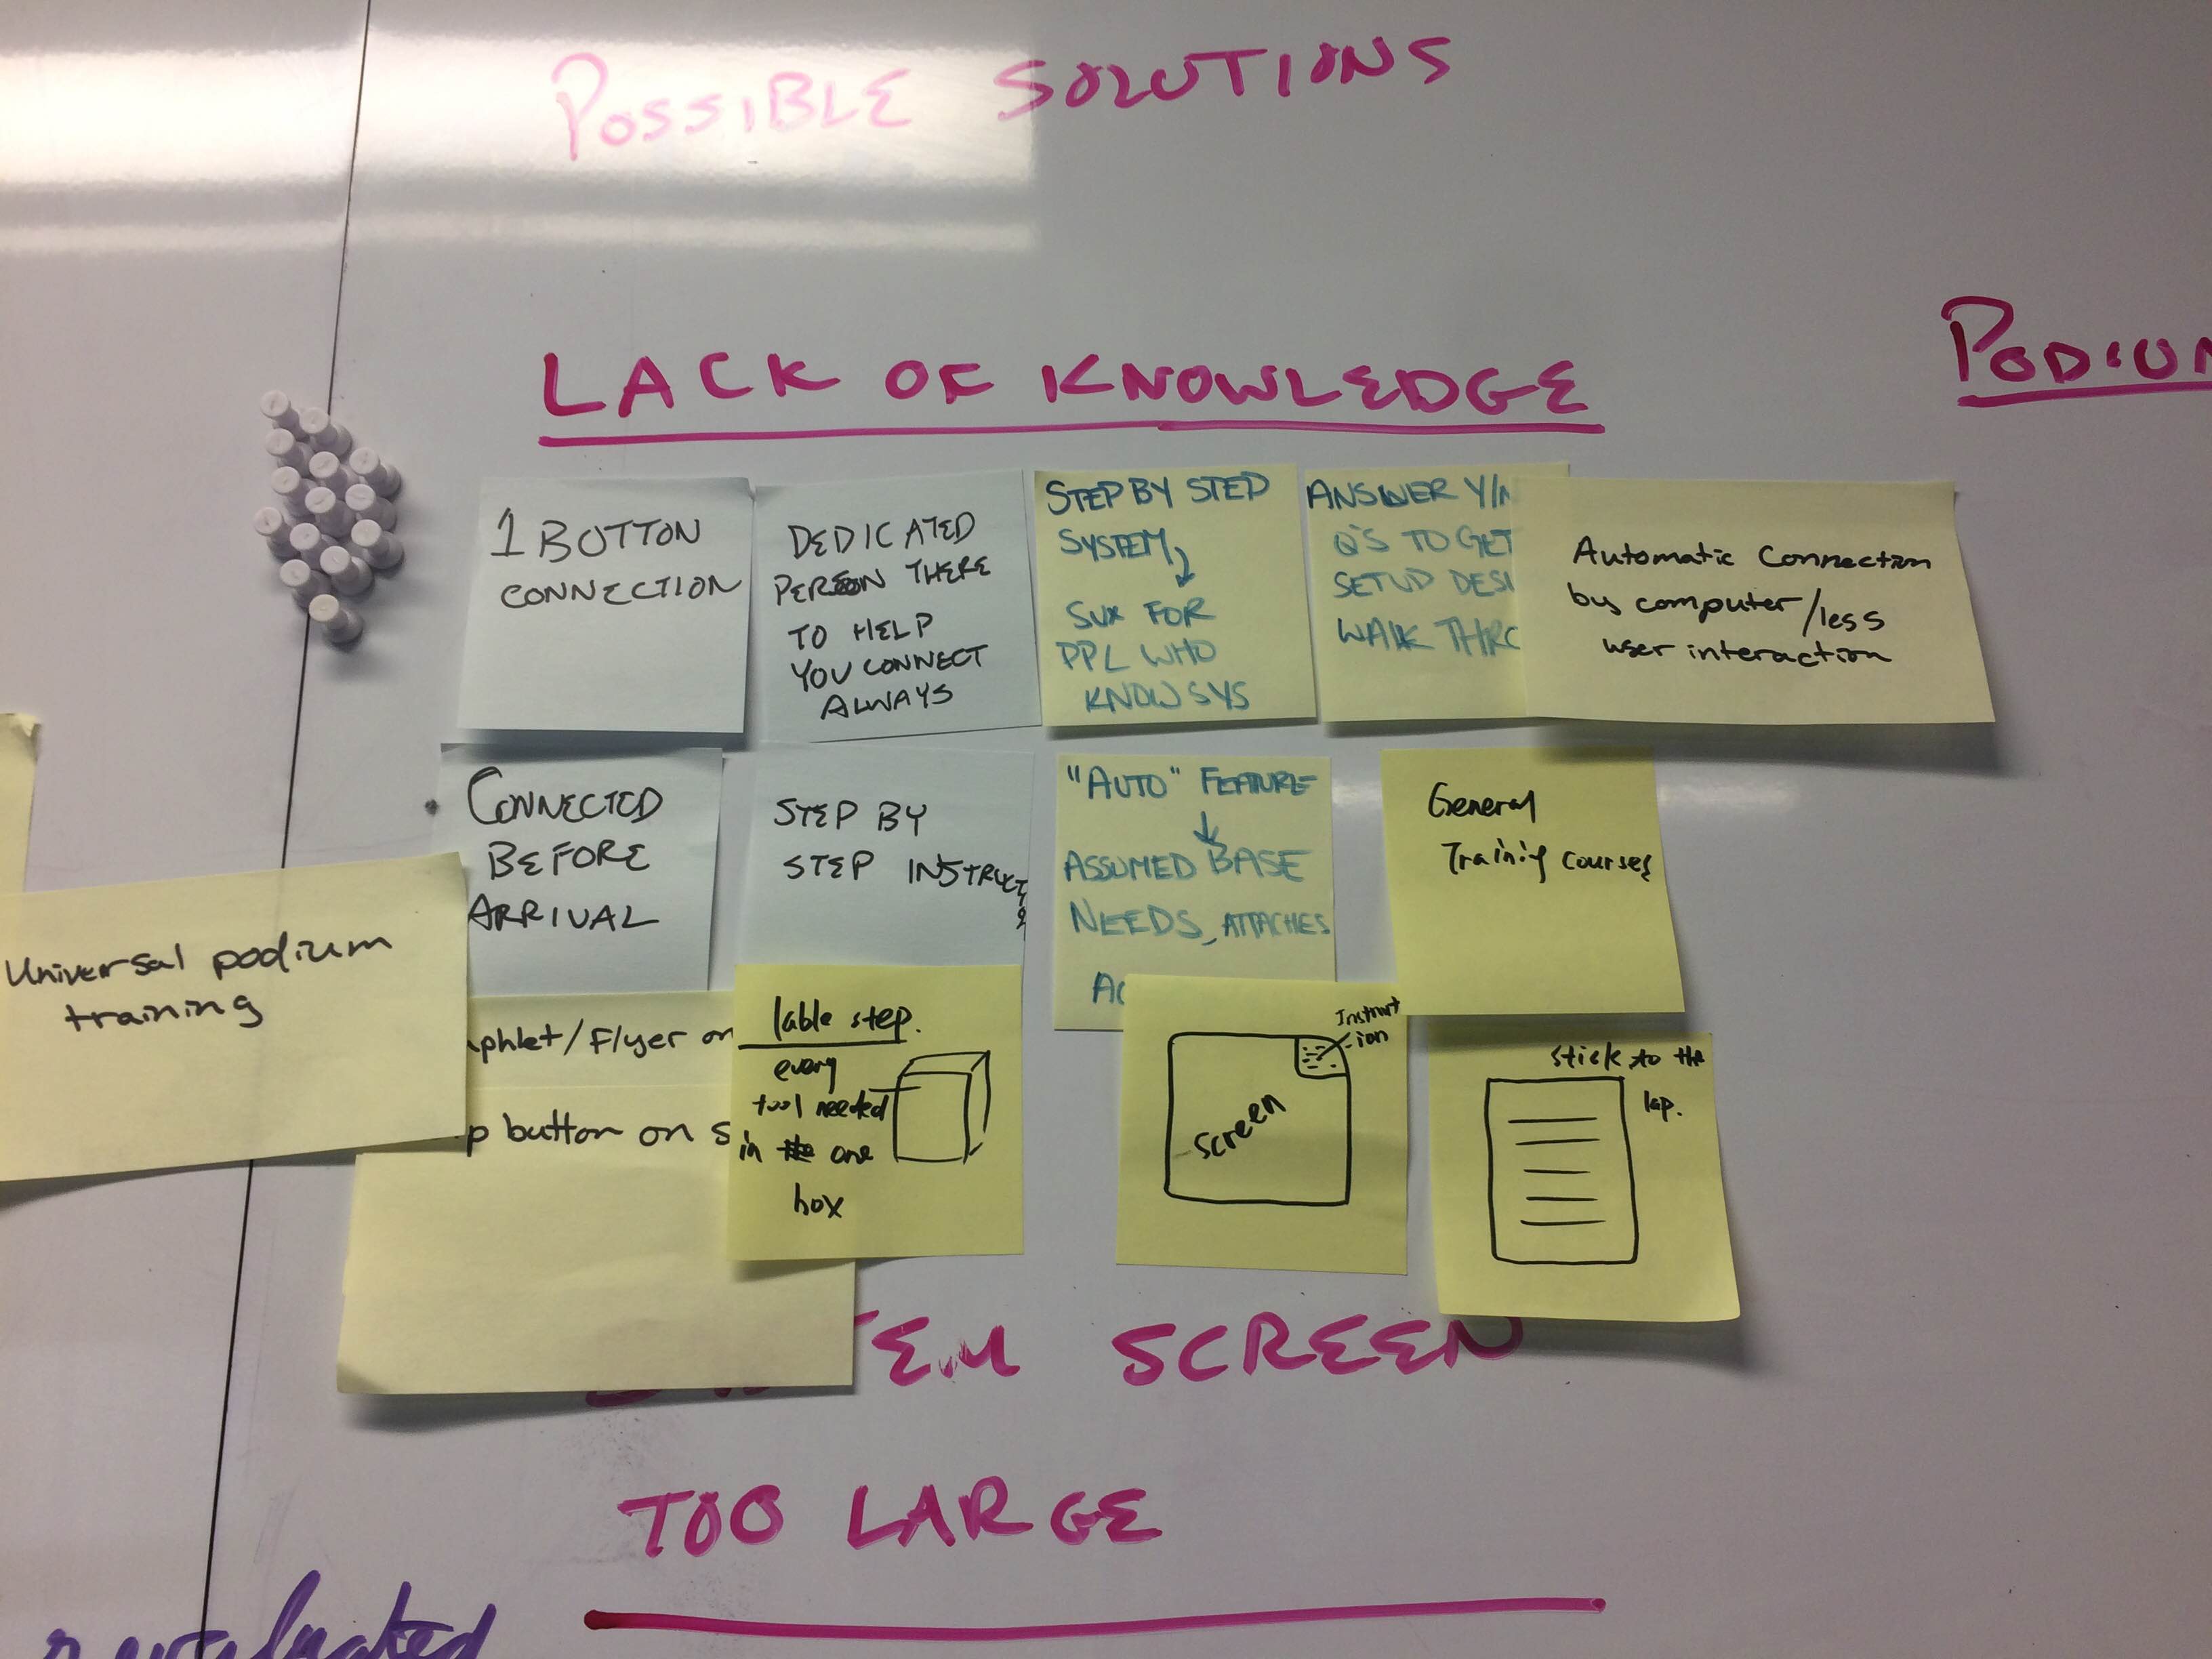 POSSIBLE SOLUTIONS
LACK OF KNOWLEDGE
PODIUM
1 BUTTON
CONNECTION
DEDICATED
PERSON THERE
TO HELP
YOU CONNECT
ALWAYS
STEP BY STEP
SYSTEM
SUX FOR
PPL WHO
KNOW SYS
ANSWER Y/N
Q'S TO GET
SETUP DESI
WALK THRO
Automatic Connection
by computer/less
user interaction
CONNECTED
BEFORE
ARRIVAL
STEP BY
STEP INSTRUCT
"AUTO" FEATURE
ASSUMED BASE
NEEDS, ATTACHES
General
Training courses
Universal podium
training
phlet/Flyer on
p button on s
lable step.
every
tool needed
in one
box
Instruct
-ion
screen
stick to the
lap.
TEM SCREEN
TOO LARGE
evaluated